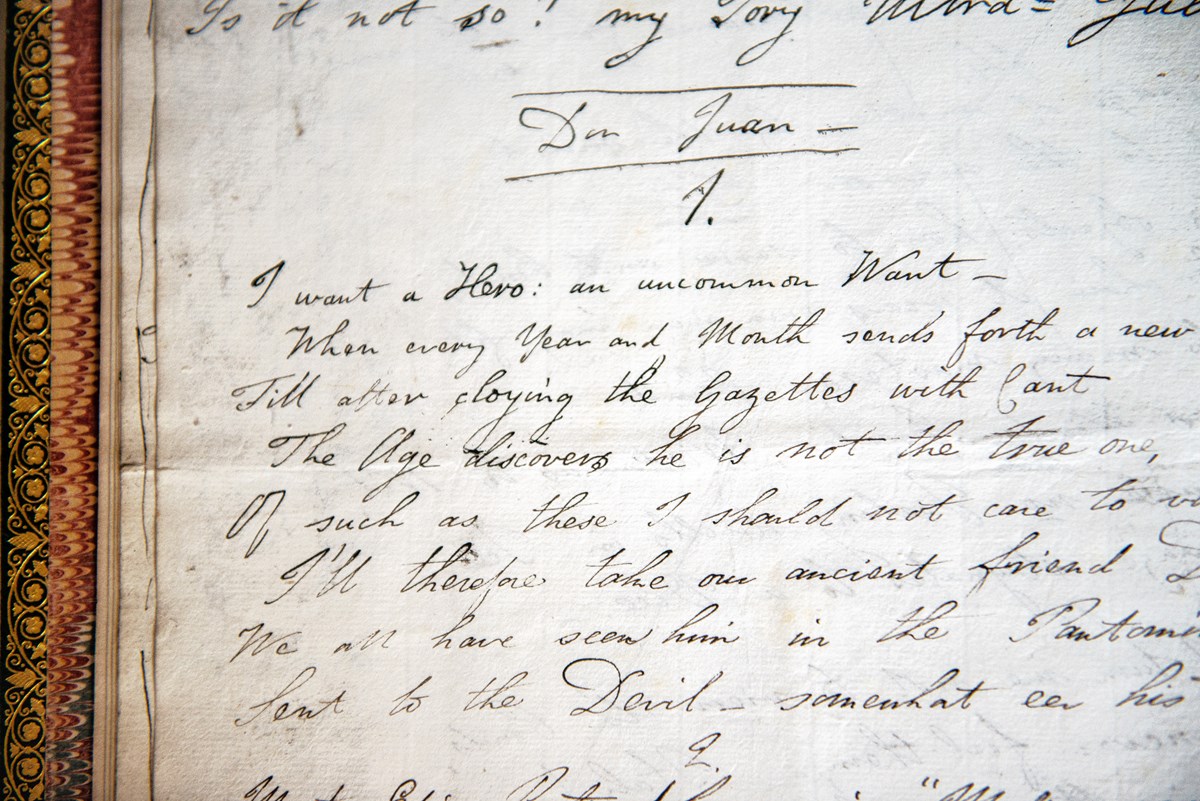 Is it not so? my Tory
Don Juan =
1.
I want a Hero: an uncommon Want –
When every Year and Month sends forth a new
Till after cloying the Gazettes with Cant
The Age discovers he is not the true one,
Of such as these I should not care to
I'll therefore take our ancient friend
We all have seen him in the
Sent to the Devil – somewhat eer his
2.